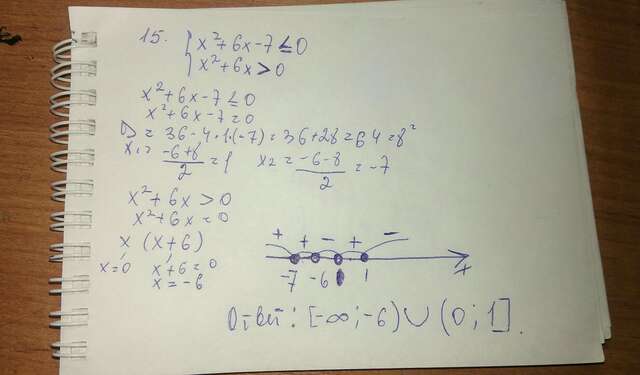 15. { x²+6x-7≤0
x²+6x>0
x²+6x-7≤0
x²+6x-7=0
D=36-4·1·(-7)=36+28=64=8²
x₁=(-6+8)/2=1 x₂=(-6-8)/2=-7
x²+6x>0
x²+6x=0
x(x+6)
x=0 x+6=0
x=-6
+ + - + -
-7 -6 0 1 x
Ответ: [-∞;-6)∪(0;1].